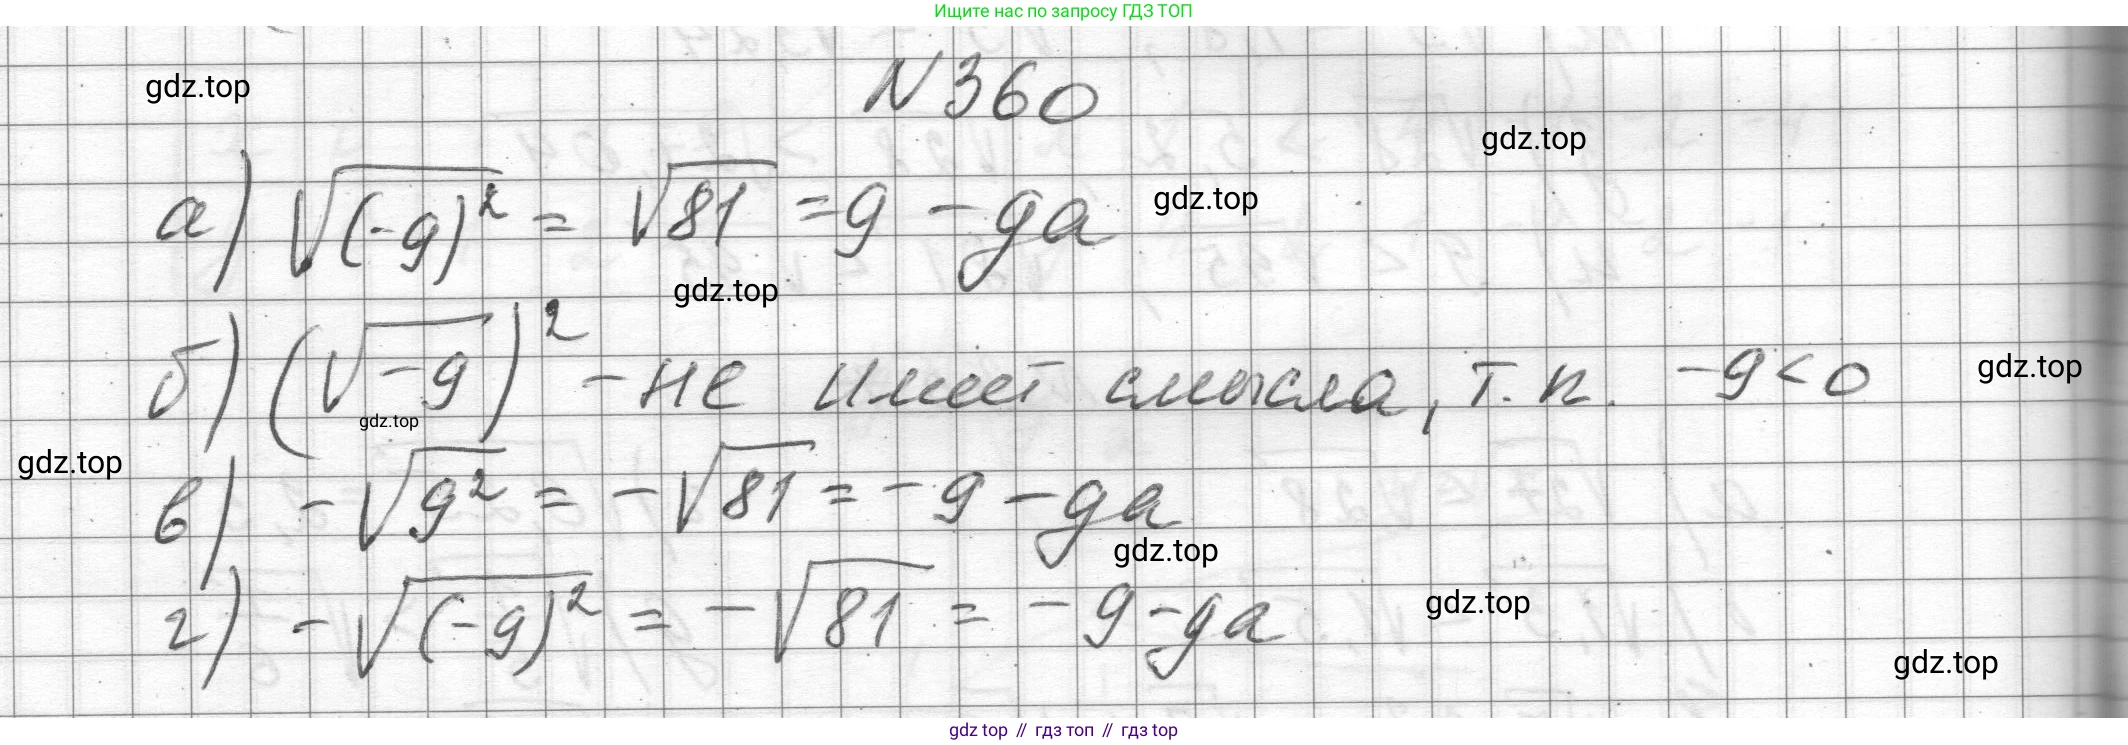 Ищите нас по запросу ГДЗ ТОП
N 360
gdz.top
gdz.top
а) √(-9)² = √81 = 9 - да
gdz.top
gdz.top
б) (√-9)² - не имеет смысла, т.к. -9 < 0
gdz.top
gdz.top
gdz.top
в) -√9² = -√81 = -9 - да
gdz.top
г) -√(-9)² = -√81 = -9 - да
gdz.top
gdz.top
gdz top // гдз топ // гдз top